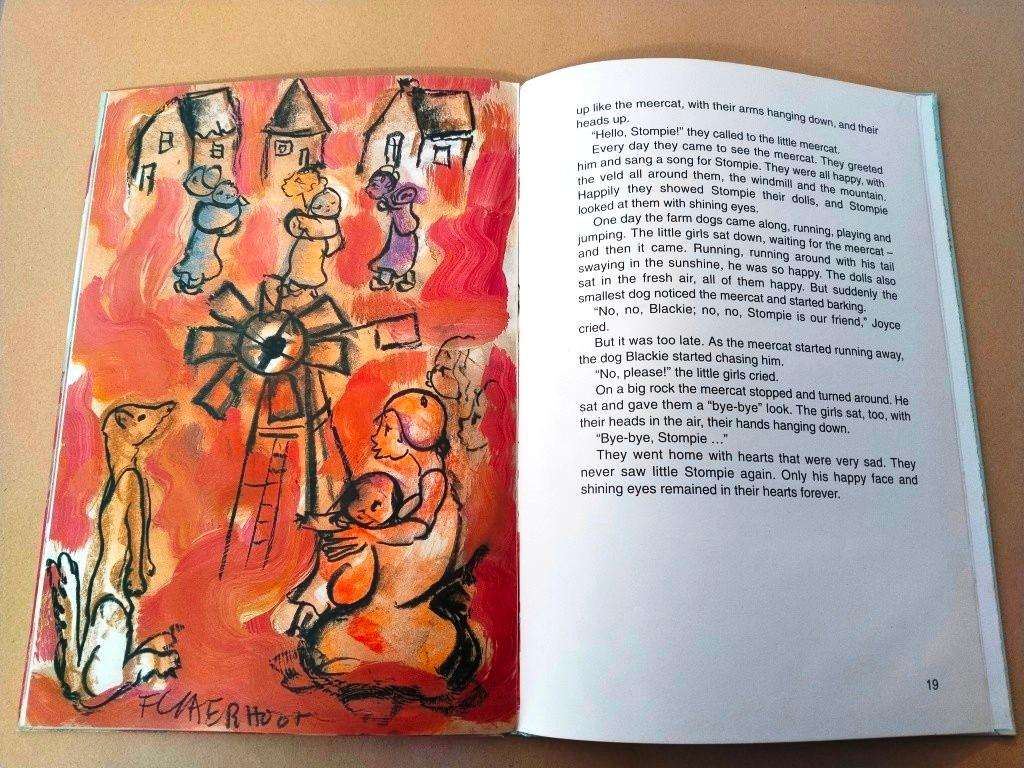 F CLAERHOUT
up like the meercat, with their arms hanging down, and their
heads up.
“Hello, Stompie!” they called to the little meercat.
Every day they came to see the meercat. They greeted
him and sang a song for Stompie. They were all happy, with
the veld all around them, the windmill and the mountain.
Happily they showed Stompie their dolls, and Stompie
looked at them with shining eyes.
One day the farm dogs came along, running, playing and
jumping. The little girls sat down, waiting for the meercat –
and then it came. Running, running around with his tail
swaying in the sunshine, he was so happy. The dolls also
sat in the fresh air, all of them happy. But suddenly the
smallest dog noticed the meercat and started barking.
“No, no, Blackie; no, no, Stompie is our friend,” Joyce
cried.
But it was too late. As the meercat started running away,
the dog Blackie started chasing him.
“No, please!” the little girls cried.
On a big rock the meercat stopped and turned around. He
sat and gave them a “bye-bye” look. The girls sat, too, with
their heads in the air, their hands hanging down.
“Bye-bye, Stompie ...”
They went home with hearts that were very sad. They
never saw little Stompie again. Only his happy face and
shining eyes remained in their hearts forever.
19